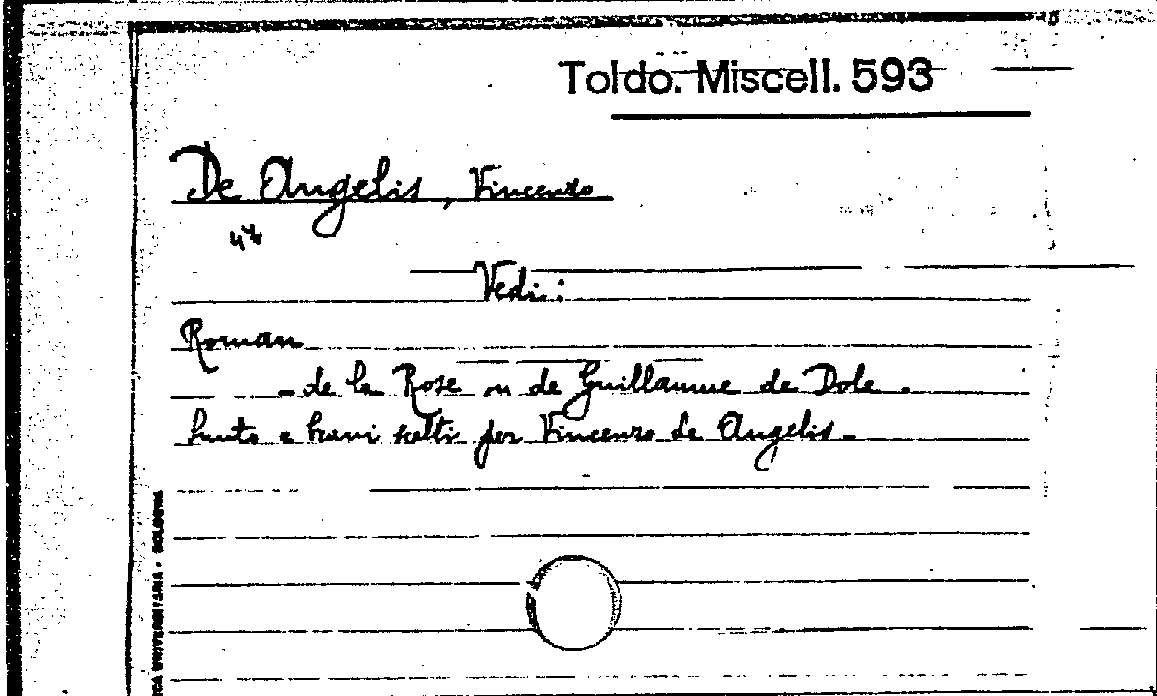 Toldo. Miscell. 593
De Angelis, Vincenzo
Vedi:
Roman
- de la Rose ou de Guillaume de Dole.
Sunto e brani scelti per Vincenzo de Angelis -
UNIVERSITARIA - BOLOGNA